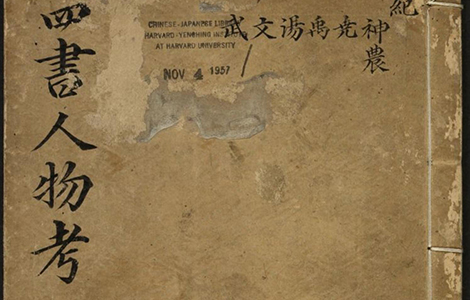 紀
神農
堯
禹
湯
文
武
CHINESE-JAPANESE LIB
HARVARD-YENCHING INS
AT HARVARD UNIVERSITY
NOV 4 1957
四書人物考